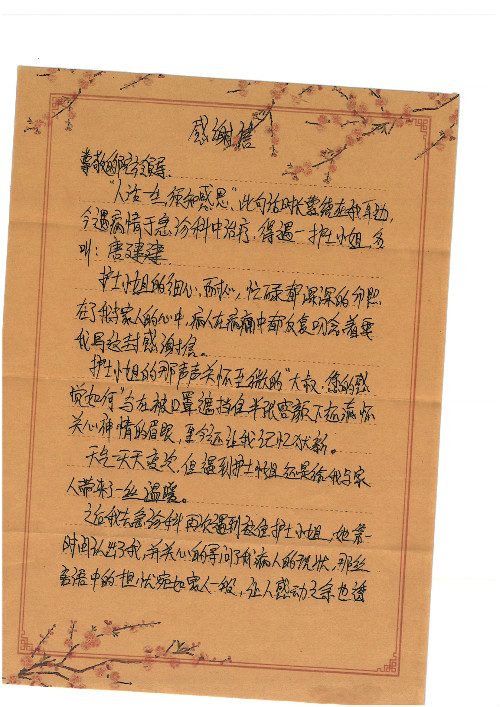 感谢信
尊敬的院领导:
“人活一生须知感恩”,此句话时长萦绕在我耳边,
今遇病情于急诊科中治疗,得遇一护士小姐,名
叫:唐建建。
护士小姐的细心,耐心,忙碌都深深的印照
在了我与家人的心中,病人在病痛中都反复叨念着要
我写这封感谢信。
护士小姐的那声声关怀至微的“大叔,您的感
觉如何”与在被口罩遮挡住半张容颜下
关心神情的眉眼,至今还让我记忆犹新。
天气一天天变冷,但遇到护士小姐还是给我与家
人带来了一丝温暖。
之后我去急诊科再次遇到这位护士小姐,她第一
时间认出了我,并关心的寻问了我病人的现状,那丝
言语中的担忧宛如家人一般,让人感动之余也透